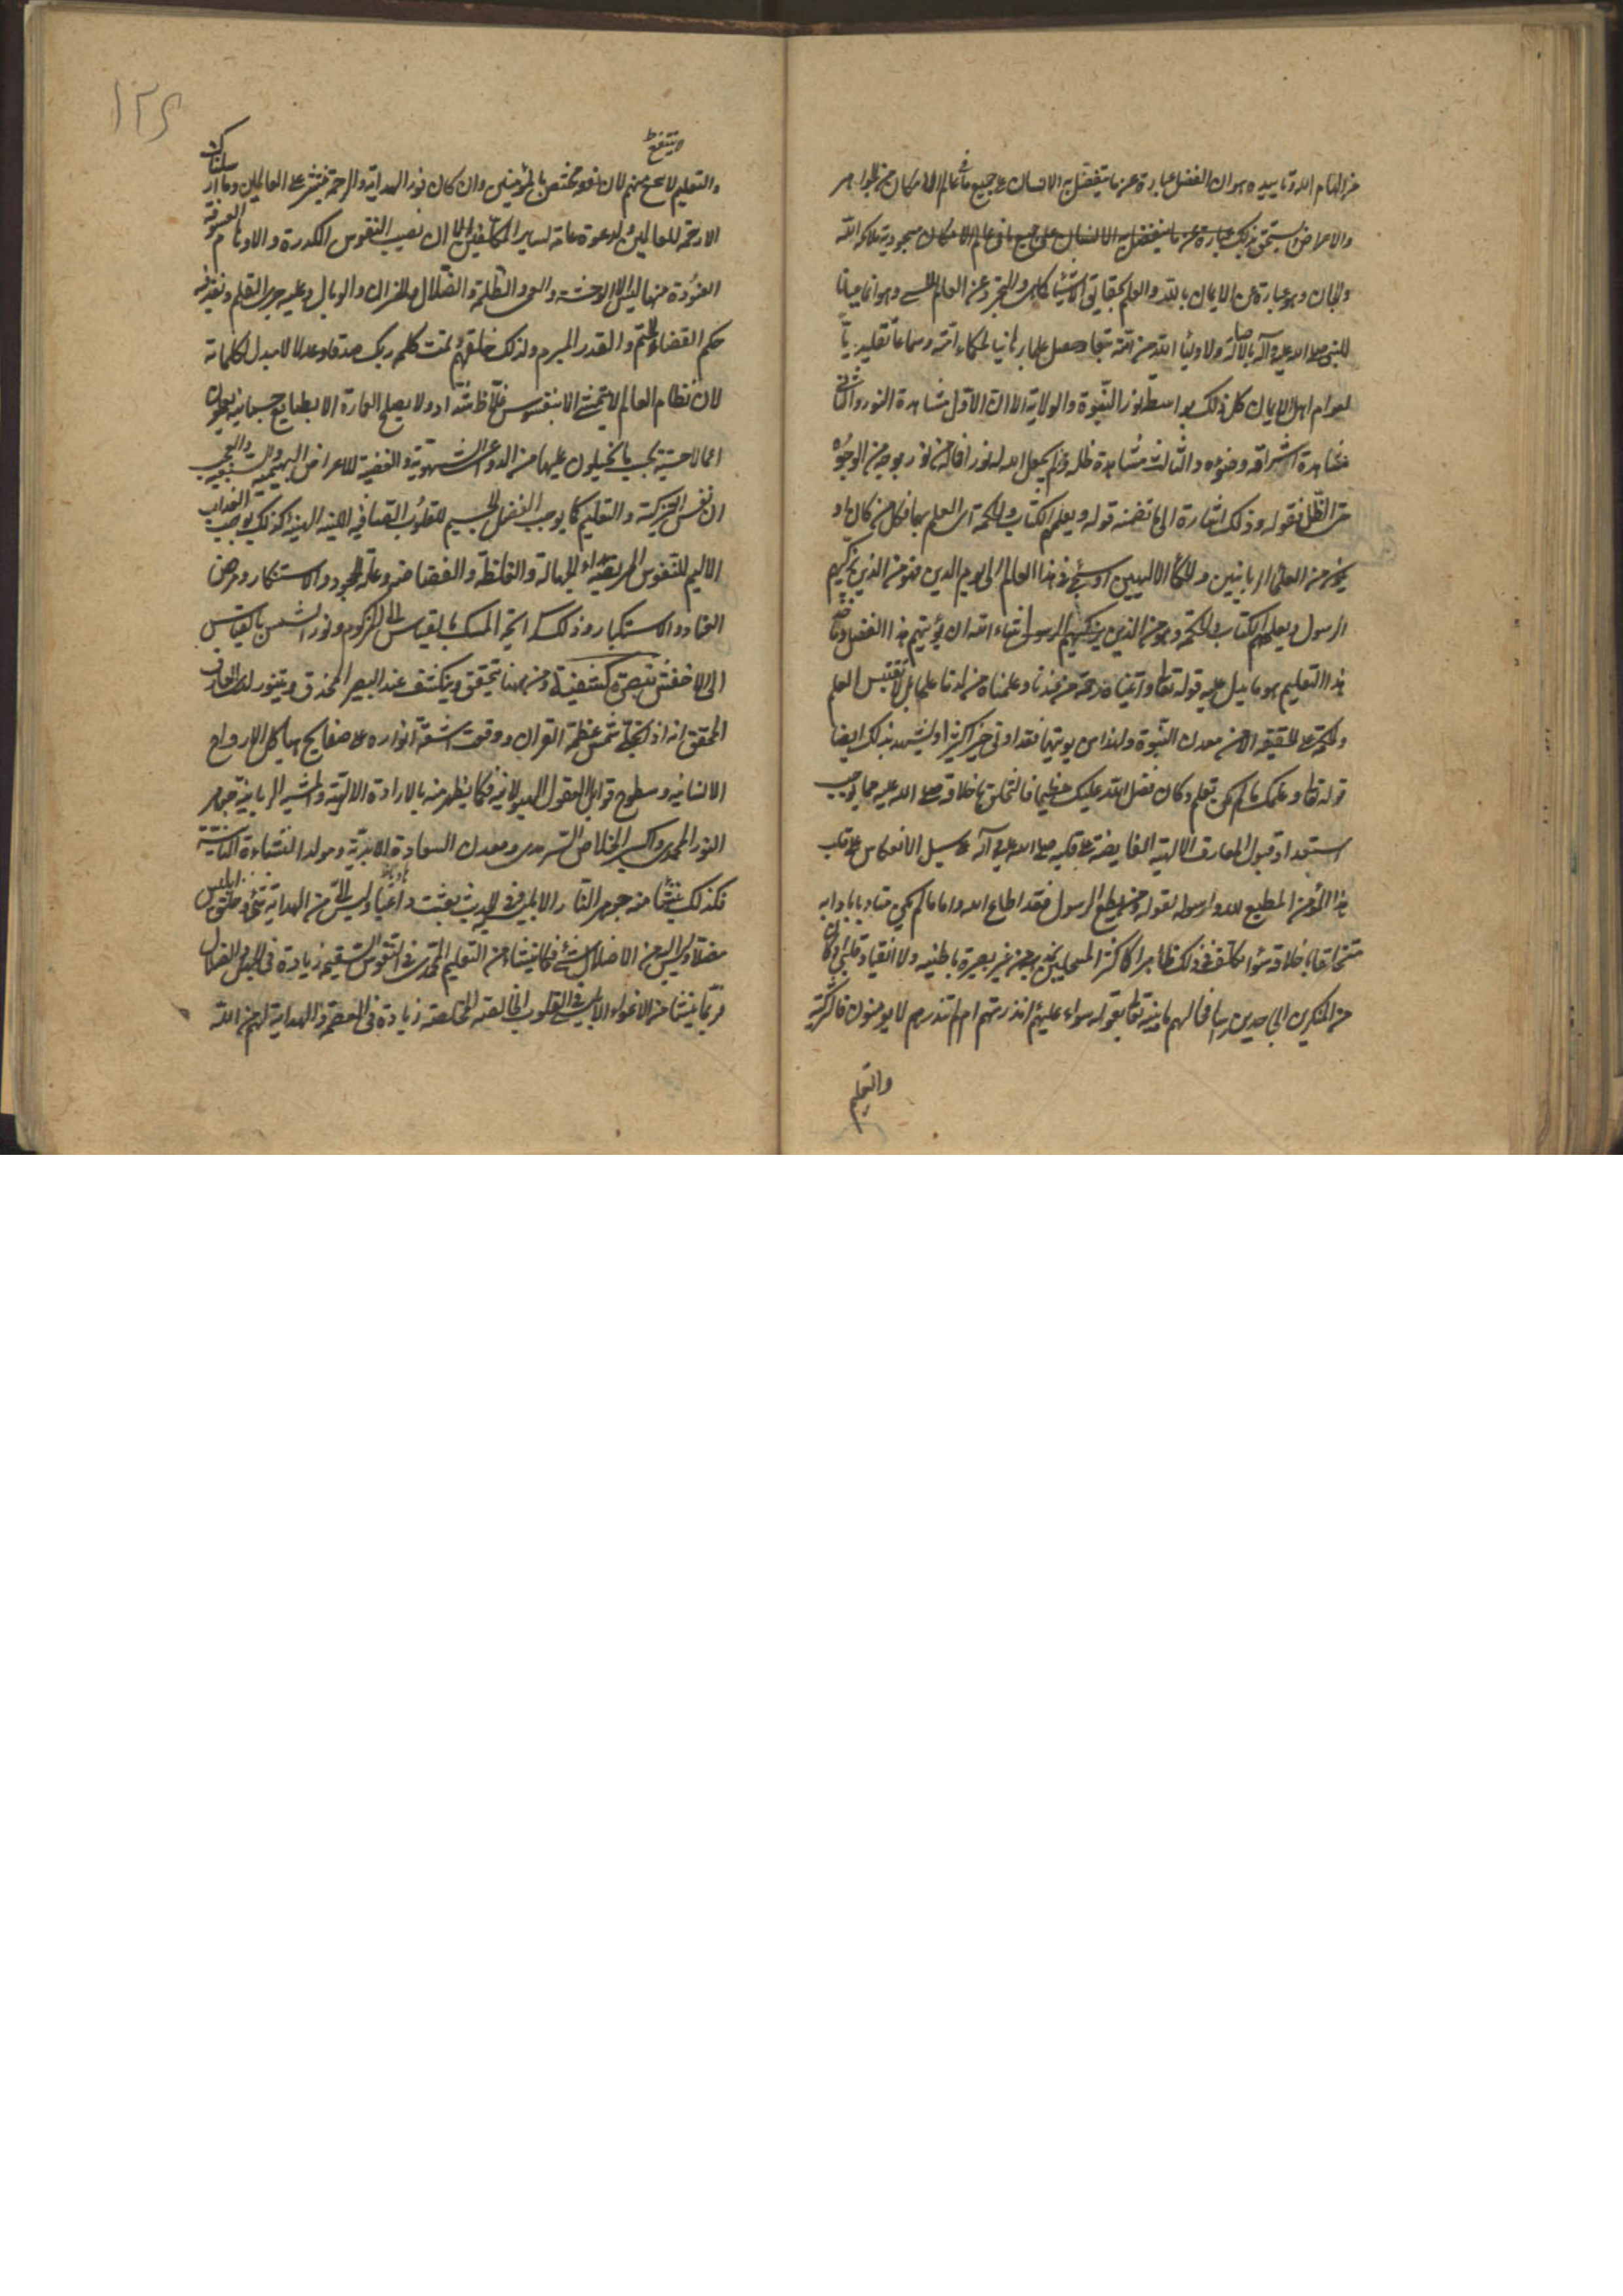 من الهام الله وتاييده هو ان الفضل عبارة عن ما يتفضل به الانسان على جميع ما في عالم الامكان من الجواهر
والاعراض يستحق بذلك عبارة عن ما يتفضل به الانسان على جميع ما في عالم الامكان مسجودية ملائكة الله
والجان وهو عبارة عن الايمان بالله والعلم بحقائق الاشياء كما هي والتجرد عن العالم الحسي وهو انما عيانا
للنبي صلى الله عليه وآله بالاصالة ولاولياء الله من امته تبعا وحصل علما برهانيا لحكماء امته وسماعا تقليديا
لعوام اهل الايمان كل ذلك بواسطة نور النبوة والولاية الا ان الاول مشاهدة النور والثاني
مشاهدة اشراقه وضوئه والثالث مشاهدة ظله ومن لم يجعل الله له نورا فما له من نور بوجه من الوجوه
حتى الظل فقوله وذلك اشارة الى ما تضمنه قوله ويعلمهم الكتاب والحكمة اي العلم بهما فكل من كان او
يكون من العلماء الربانيين والحكماء الالهيين او سيجئ في هذا العالم الى يوم الدين فهو من الذين يزكيهم
الرسول ويعلمهم الكتاب والحكمة وهو من الذين يزكيهم الرسول شاء الله ان يؤتيهم هذا الفضل
هذا التعليم هو ما يدل عليه قوله تعالى وآتيناه رحمة من عندنا وعلمناه من لدنا علما بل لا تقتبس العلم
والحكمة على الحقيقة الا من معدن النبوة ولهذا من يوتيها فقد اوتي خيرا كثيرا ويشهد بذلك ايضا
قوله تعالى وعلمك ما لم تكن تعلم وكان فضل الله عليك عظيما فالتخلق باخلاقه صلى الله عليه مما يوجب
استعداد قبول المعارف الالهية الفايضة على قلبه صلى الله عليه وآله على سبيل الانعكاس على قلب
هذا المؤمن المطيع لله ولرسوله لقوله ومن يطع الرسول فقد اطاع الله واما ما لم يكن متادبا بآدابه
متخلقا باخلاقه سواء كلف في ذلك ظاهرا كاكثر المسلمين من غير بصيرة باطنية ولا انقياد قلبي او كان
من المنكرين الجاحدين راسا فحالهم ما بينه تعالى بقوله سواء عليهم ءانذرتهم ام لم تنذرهم لا يومنون فالتزكية
والتعليم
١٢٤
ينتفع
والتعليم لا ينجع منهم لان نفعه مختص بالمؤمنين وان كان نور الهداية والرحمة ينشر على العالمين وما ارسلناك
الا رحمة للعالمين والدعوة عامة لساير المكلفين الا ان نصيب النفوس الكدرة والاوهام المعوقة
المعودة منها ليس الا الوحشة والعمى والظلمة والضلال والخزان والوبال وعليه جرى القلم ونفذ فيه
حكم القضاء الحتم والقدر المبرم ولذلك خلقهم وتمت كلمة ربك صدقا وعدلا لا مبدل لكلماته
لان نظام العالم لا يتمشى الا بنفوس غلاظ شداد ولا يصلح العمارة الا بطبايع جسمانية يعملون
اعمالا حسية بحسب ما يخيلون عليها من الدواعي الشهوية والغضبية للاعراض البهيمية والسبعية والعجب
ان نفس التزكية والتعليم كما يوجب الفضل الجسيم للقلوب الصافية اللينة الهينة كذلك يوجب العذاب
الاليم للنفوس المريضة بداء الجهالة والغلظة والفظاظة وعلة الجحود والاستنكار ومرض
العناد والاستكبار وذلك كرائحة المسك بالقياس الى المزكوم ونور الشمس بالقياس
الى الاخفش تبصرة كشفية ومن ههنا يتحقق وينكشف عند البصير المحدق ويتنور لدى العارف
المحقق انه اذا تجلى شمس عظمة القران ووقعت اشعة انواره على صفايح هياكل الارواح
الانسانية وسطوح قوابل العقول الهيولانية فكما يظهر منه بالارادة الالهية والمشية الربانية جوهر
النور المحمدي واكسير الخلاص السرمدي ومعدن السعادة الابدية ومولد النشاءة الثانية
فكذلك ينشأ منه جوهر النار الابليسي في الحديث بعثت داعيا وليس الي من الهداية شئ وخلق ابليس
مضلا وليس اليه من الاضلال شئ فكما ينشأ من التعليم المحمدي في النفوس الشقية زيادة في الجهل والضلال
فربما ينشأ من الاغواء الابليسي في القلوب المخالفة المخلصة زيادة في العصمة والهداية لهم من الله